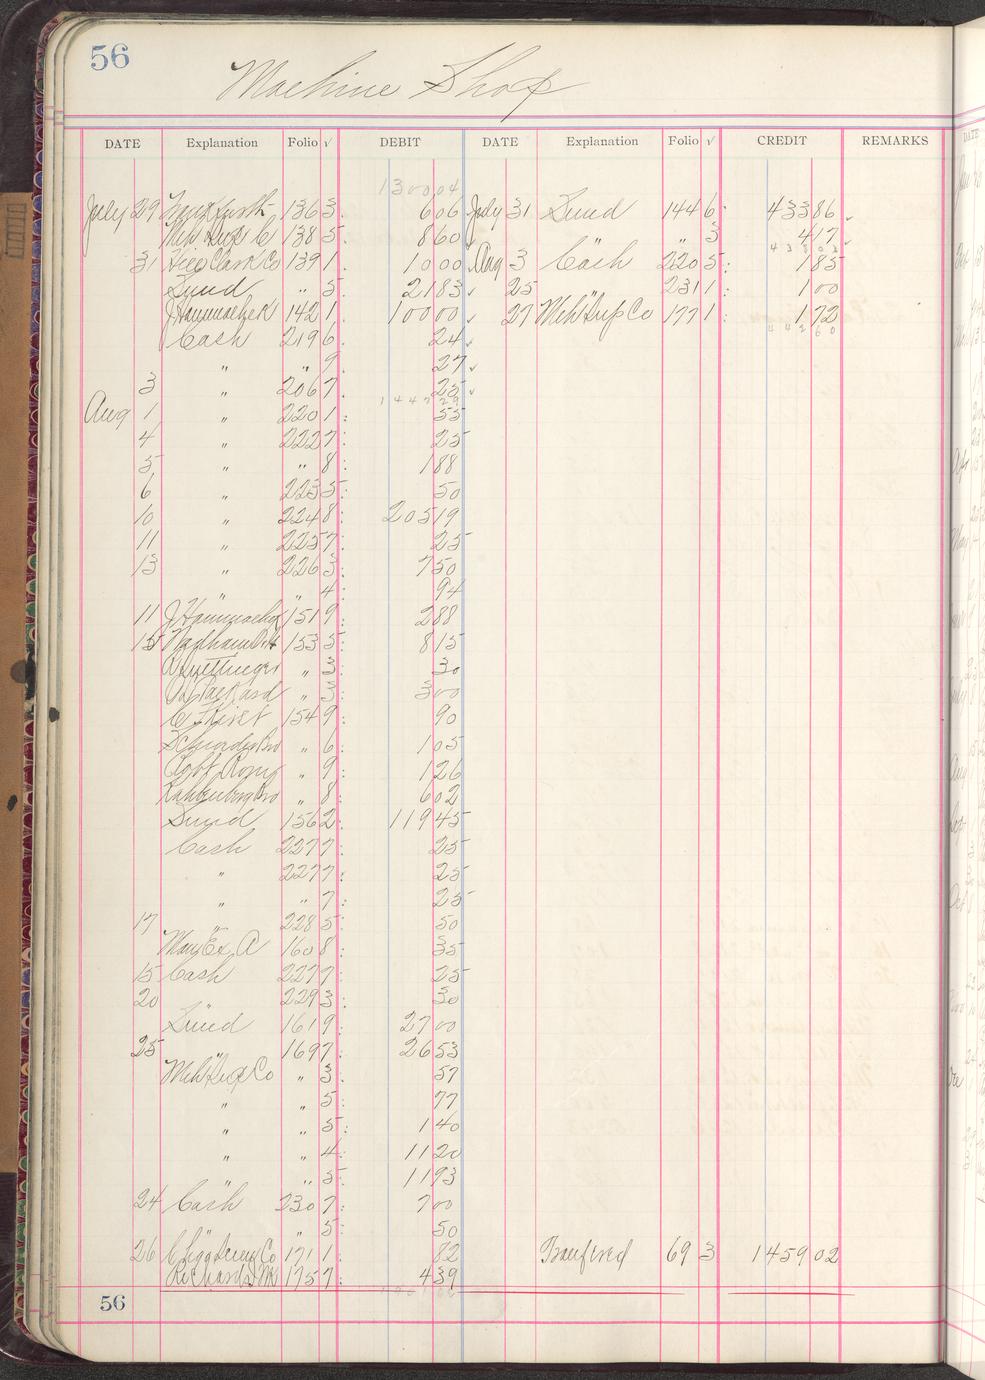 56
Machine Shop
DATE Explanation Folio √ DEBIT DATE Explanation Folio √ CREDIT REMARKS
1300 04
July 29 136 3 6 06 July 31 Sund 144 6 433 86
Meh Sup C 138 5 8 60 " 3 4 17
438 03
31 Hero Clark Co 139 1 10 00 Aug 3 Cash 220 5 1 85
Sund " 5 21 83 25 " 231 1 1 00
J Hammacher 142 1 100 00 27 Meh Sup Co 177 1 1 72
442 60
Cash 219 6 24
" " 9 27
3 " 206 7 25
1447 29
Aug 1 " 220 1 55
4 " 222 7 25
5 " " 8 1 88
6 " 223 5 50
10 " 224 8 205 19
11 " 225 7 25
13 " 226 3 7 50
" " 4 94
11 J Hammacher 151 9 2 88
15 153 5 8 15
" 3 30
Packard " 3 3 00
154 9 90
Schroder Bro " 6 1 05
Robt Rom " 9 1 26
Kahlenberg Bro " 8 6 02
Sund 156 2 119 45
Cash 227 7 25
" 227 7 25
" " 7 25
17 " 228 5 50
Many Ex A 160 8 35
15 Cash 227 7 25
20 " 229 3 30
Sund 161 9 27 00
25 " 169 7 26 53
Meh Sup Co " 3 57
" " 5 77
" " 5 1 40
" " 4 11 20
" " 5 11 93
24 Cash 230 7 7 00
" " 5 50
26 171 1 82 Tranfired 69 3 1459 02
Richards 175 7 4 39
56